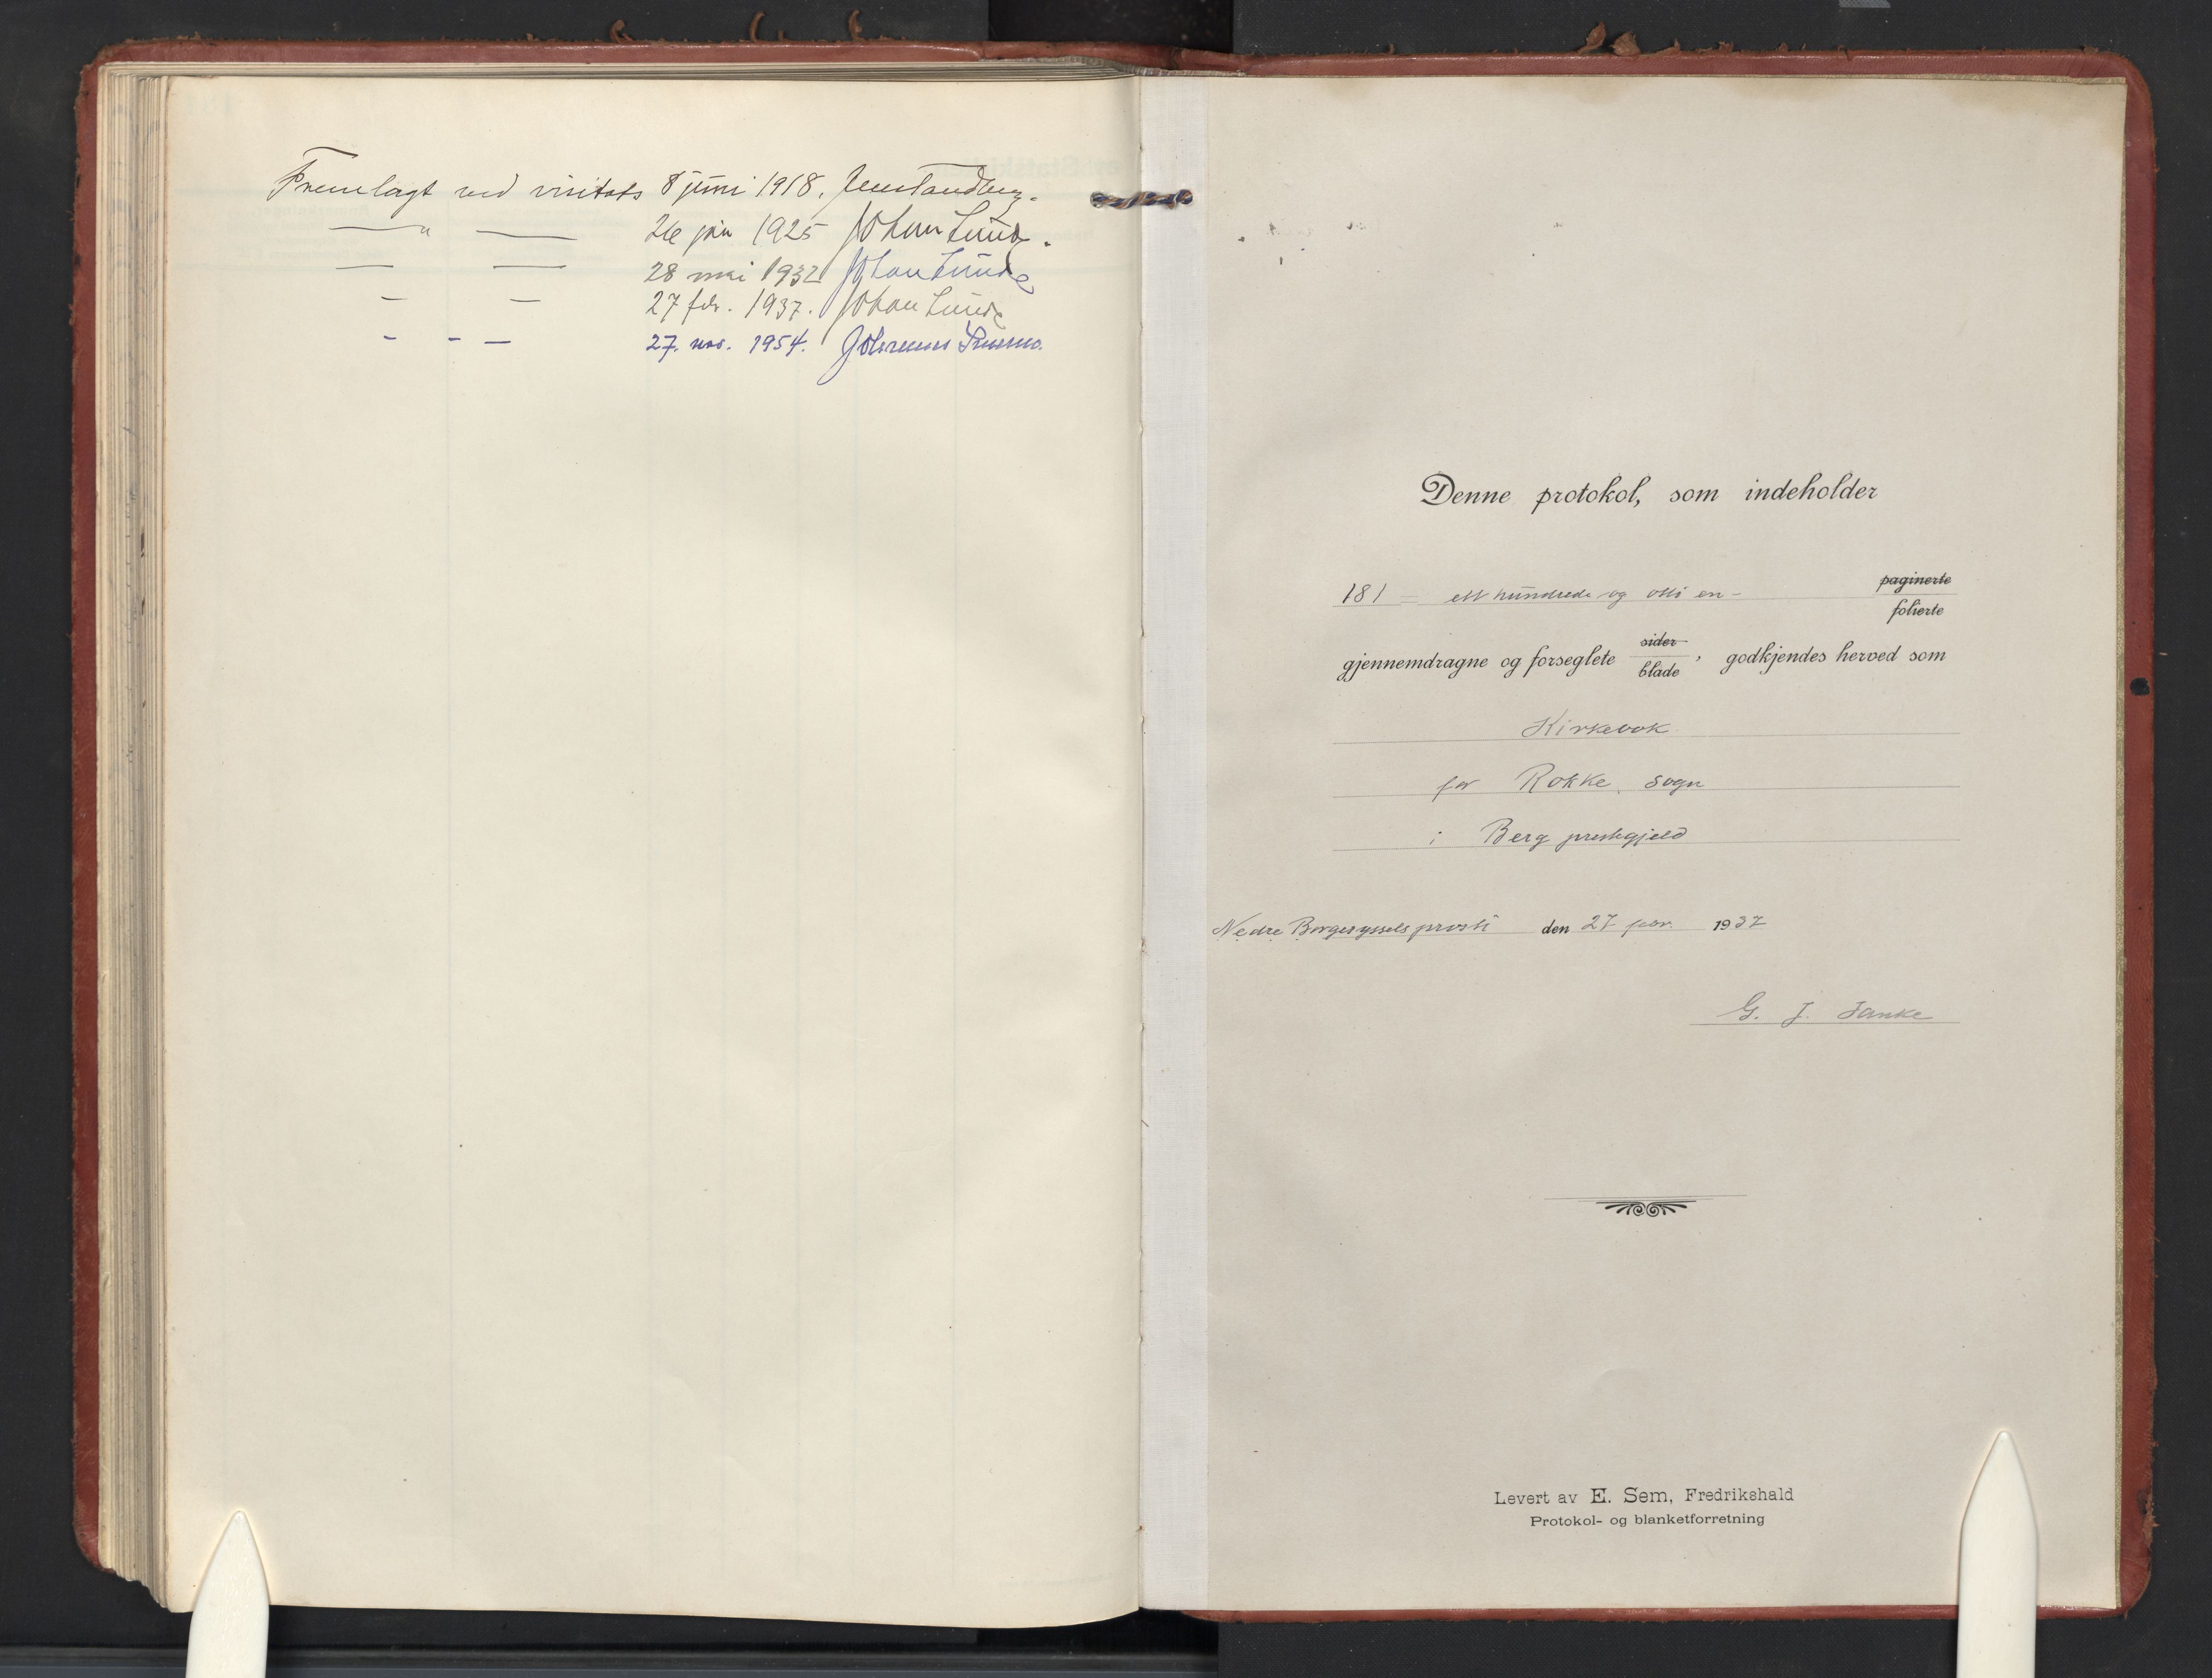 Fremlagt ved visitats 8 juni 1918. Jens Tandberg.
— " — 26 jan 1925 Johan Lunde.
— — 28 mai 1932 Johan Lunde
— — 27 febr. 1937. Johan Lunde
- - — 27. nov. 1954. Johannes Smemo.
Denne protokol, som indeholder
181 — ett hundrede og otti en — paginerte
folierte
gjennemdragne og forseglete sider
blade, godkjendes herved som
Kirkebok
for Rokke sogn
i Berg prestegjeld
Nedre Borgesyssels prosti den 27 febr. 1937
G. J. Janke
Levert av E. Sem, Fredrikshald
Protokol- og blanketforretning